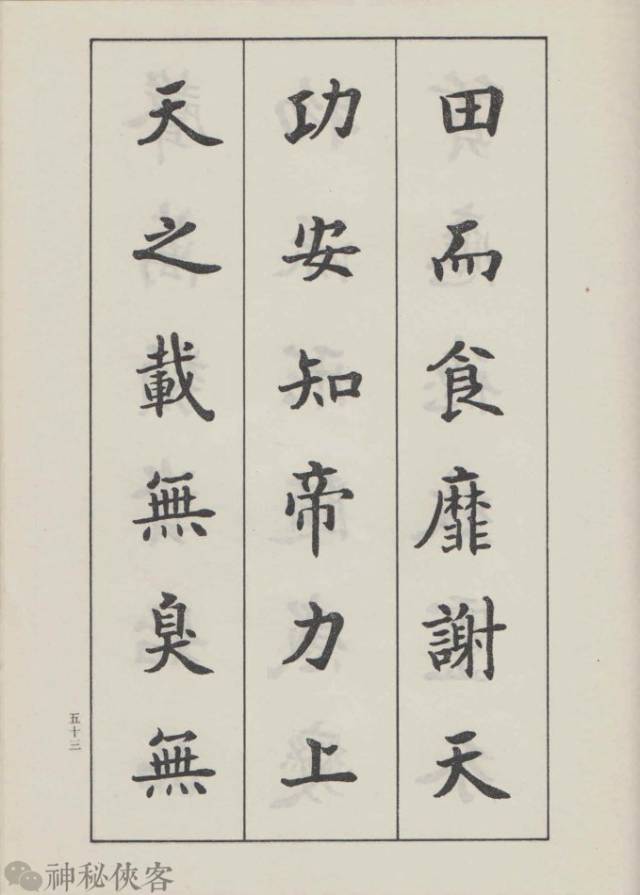 田而食靡謝天
功安知帝力上
天之載無臭無
五十三
神秘俠客